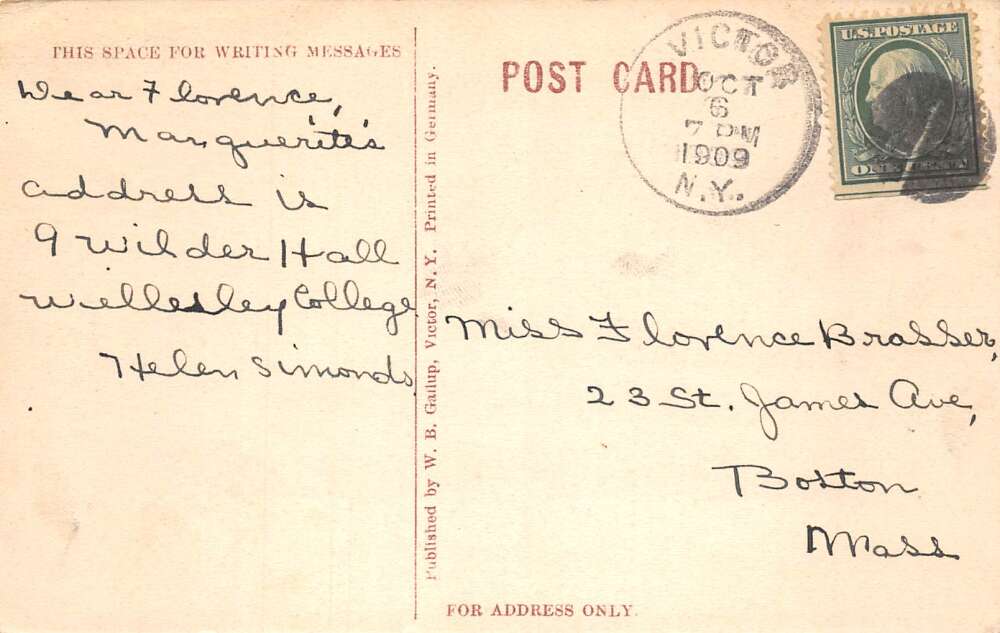 THIS SPACE FOR WRITING MESSAGES
Dear Florence,
Marguerite's
address is
9 Wilder Hall
Wellesley College
Helen Simonds
Published by W. B. Gallup, Victor, N. Y. Printed in Germany.
POST CARD
VICTOR
OCT
6
7 PM
1909
N.Y.
U.S. POSTAGE
ONE CENT
Miss Florence Brasser,
23 St. James Ave,
Boston
Mass
FOR ADDRESS ONLY.